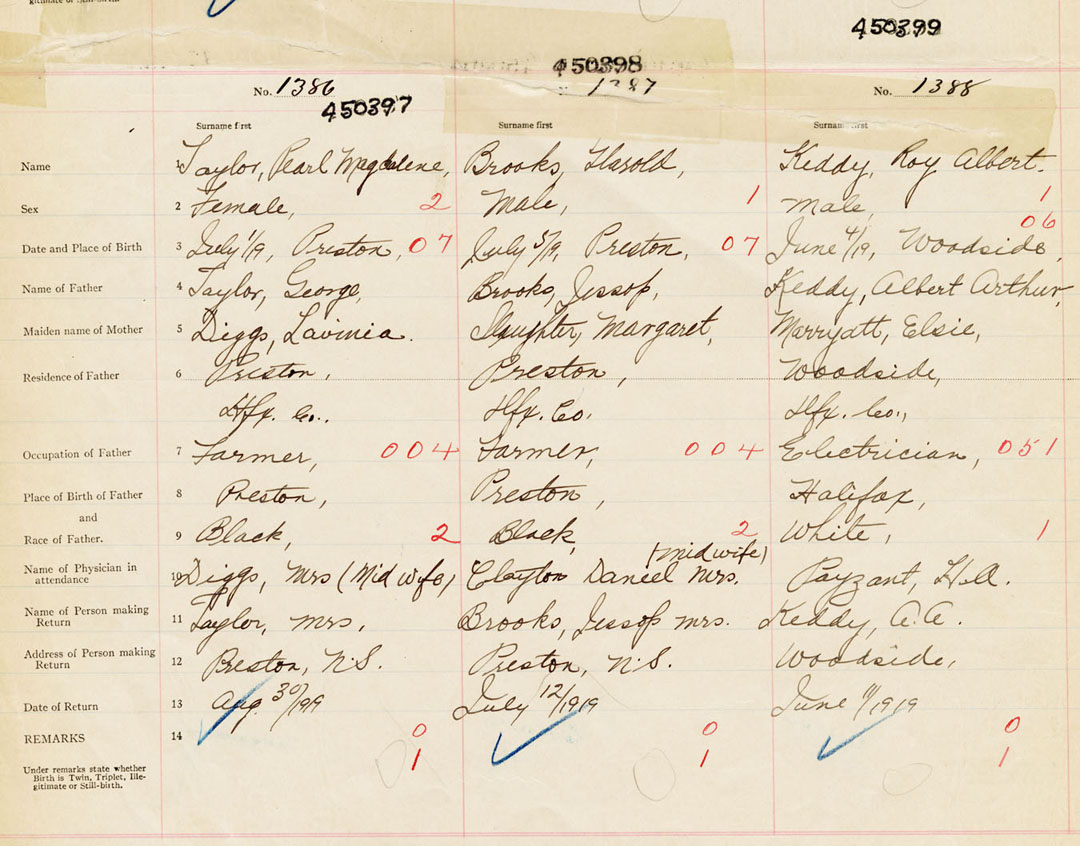 gitimate or Still-birth.
450399
450398
No. 1386 1387 No. 1388
450397
Surname first Surname first Surname first
Name 1 Taylor, Pearl Magdalene, Brooks, Harold, Keddy, Roy Albert.
Sex 2 Female, 2 Male, 1 Male, 1
06
Date and Place of Birth 3 July 1/19, Preston, 07 July 5/19, Preston, 07 June 4/19, Woodside,
Name of Father 4 Taylor, George, Brooks, Jessop, Keddy, Albert Arthur,
Maiden name of Mother 5 Diggs, Lavinia. Slaughter, Margaret, Marryatt, Elsie,
Residence of Father 6 Preston, Preston, Woodside,
Hfx. Co., Hfx. Co. Hfx. Co.,
Occupation of Father 7 Farmer, 004 Farmer, 004 Electrician, 051
Place of Birth of Father 8 Preston, Preston, Halifax,
and
Race of Father. 9 Black, 2 Black, 2 White, 1
(Midwife)
Name of Physician in attendance 10 Diggs, Mrs (Midwife) Clayton Daniel Mrs. Payzant, H.A.
Name of Person making Return 11 Taylor, Mrs, Brooks, Jessop Mrs. Keddy, A.A.
Address of Person making Return 12 Preston, N.S. Preston, N.S. Woodside,
Date of Return 13 Aug. 30/1919 July 12/1919 June 11/1919
REMARKS 14 0 0 0
1 1 1
Under remarks state whether
Birth is Twin, Triplet, Ille-
gitimate or Still-birth.